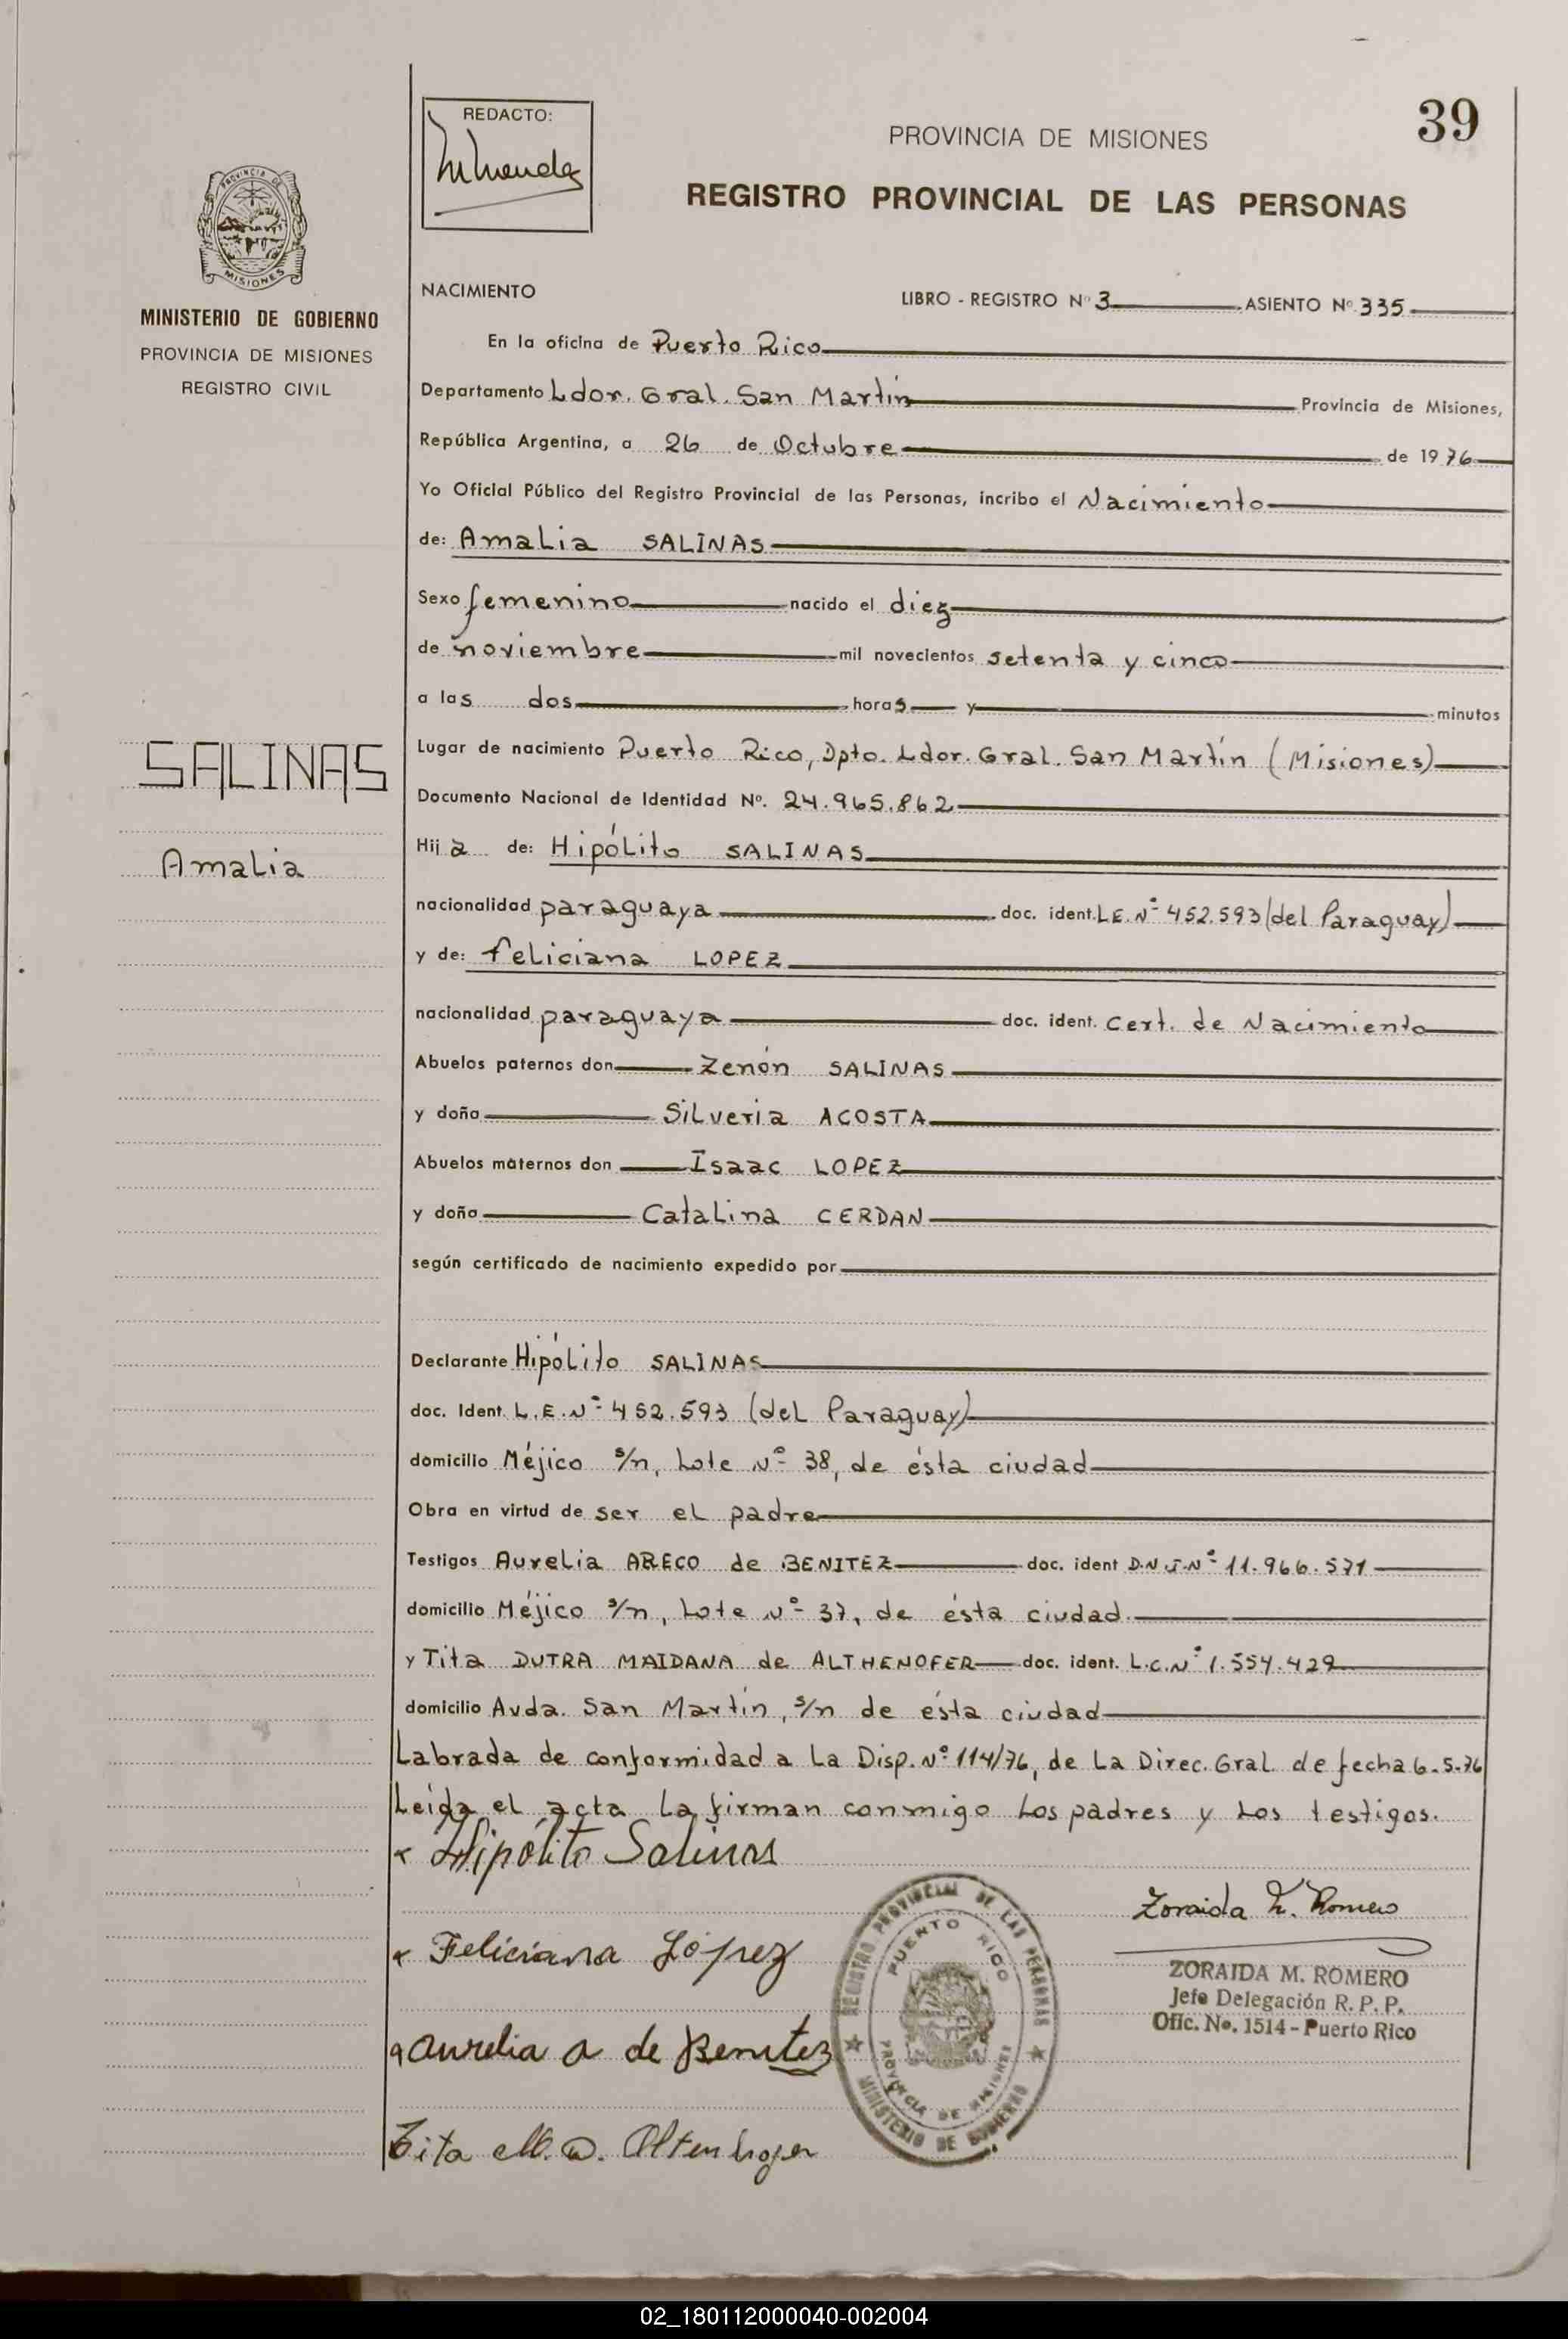 39
REDACTO:
PROVINCIA DE MISIONES
REGISTRO PROVINCIAL DE LAS PERSONAS
PROVINCIA DE
MISIONES
MINISTERIO DE GOBIERNO
PROVINCIA DE MISIONES
REGISTRO CIVIL
NACIMIENTO LIBRO - REGISTRO Nº 3 ASIENTO Nº 335
En la oficina de Puerto Rico
Departamento Ldor. Gral. San Martín Provincia de Misiones,
República Argentina, a 26 de Octubre de 1976
Yo Oficial Público del Registro Provincial de las Personas, incribo el Nacimiento
de: Amalia SALINAS
Sexo femenino nacido el diez
de noviembre mil novecientos setenta y cinco
a las dos horas y minutos
SALINAS
Amalia
Lugar de nacimiento Puerto Rico, Dpto. Ldor. Gral. San Martín (Misiones)
Documento Nacional de Identidad Nº. 24.965.862
Hija de: Hipólito SALINAS
nacionalidad paraguaya doc. ident. L.E. Nº 452.593 (del Paraguay)
y de: feliciana LOPEZ
nacionalidad paraguaya doc. ident. Cert. de Nacimiento
Abuelos paternos don Zenón SALINAS
y doña Silveria ACOSTA
Abuelos maternos don Isaac LOPEZ
y doña Catalina CERDAN
según certificado de nacimiento expedido por
Declarante Hipólito SALINAS
doc. Ident. L.E. Nº 452.593 (del Paraguay)
domicilio Méjico s/n, Lote Nº 38, de ésta ciudad
Obra en virtud de ser el padre
Testigos Aurelia ARECO de BENITEZ doc. ident D.N.I. Nº 11.966.571
domicilio Méjico s/n, Lote Nº 37, de ésta ciudad.
y Tita DUTRA MAIDANA de ALTHENOFER doc. ident. L.C. Nº 1.554.429
domicilio Avda. San Martín, s/n de ésta ciudad
Labrada de conformidad a la Disp. Nº 114/76, de la Direc. Gral de fecha 6-5-76
Leida el acta la firman conmigo los padres y los testigos.
Hipólito Salinas
Feliciana López
Aurelia A de Benitez
Tita M. D. Altenhofer
REGISTRO PROVINCIAL DE LAS PERSONAS
PUERTO RICO
PROVINCIA DE MISIONES
MINISTERIO DE GOBIERNO
Zoraida M. Romero
ZORAIDA M. ROMERO
Jefe Delegación R. P. P.
Ofic. No. 1514 - Puerto Rico
02_180112000040-002004